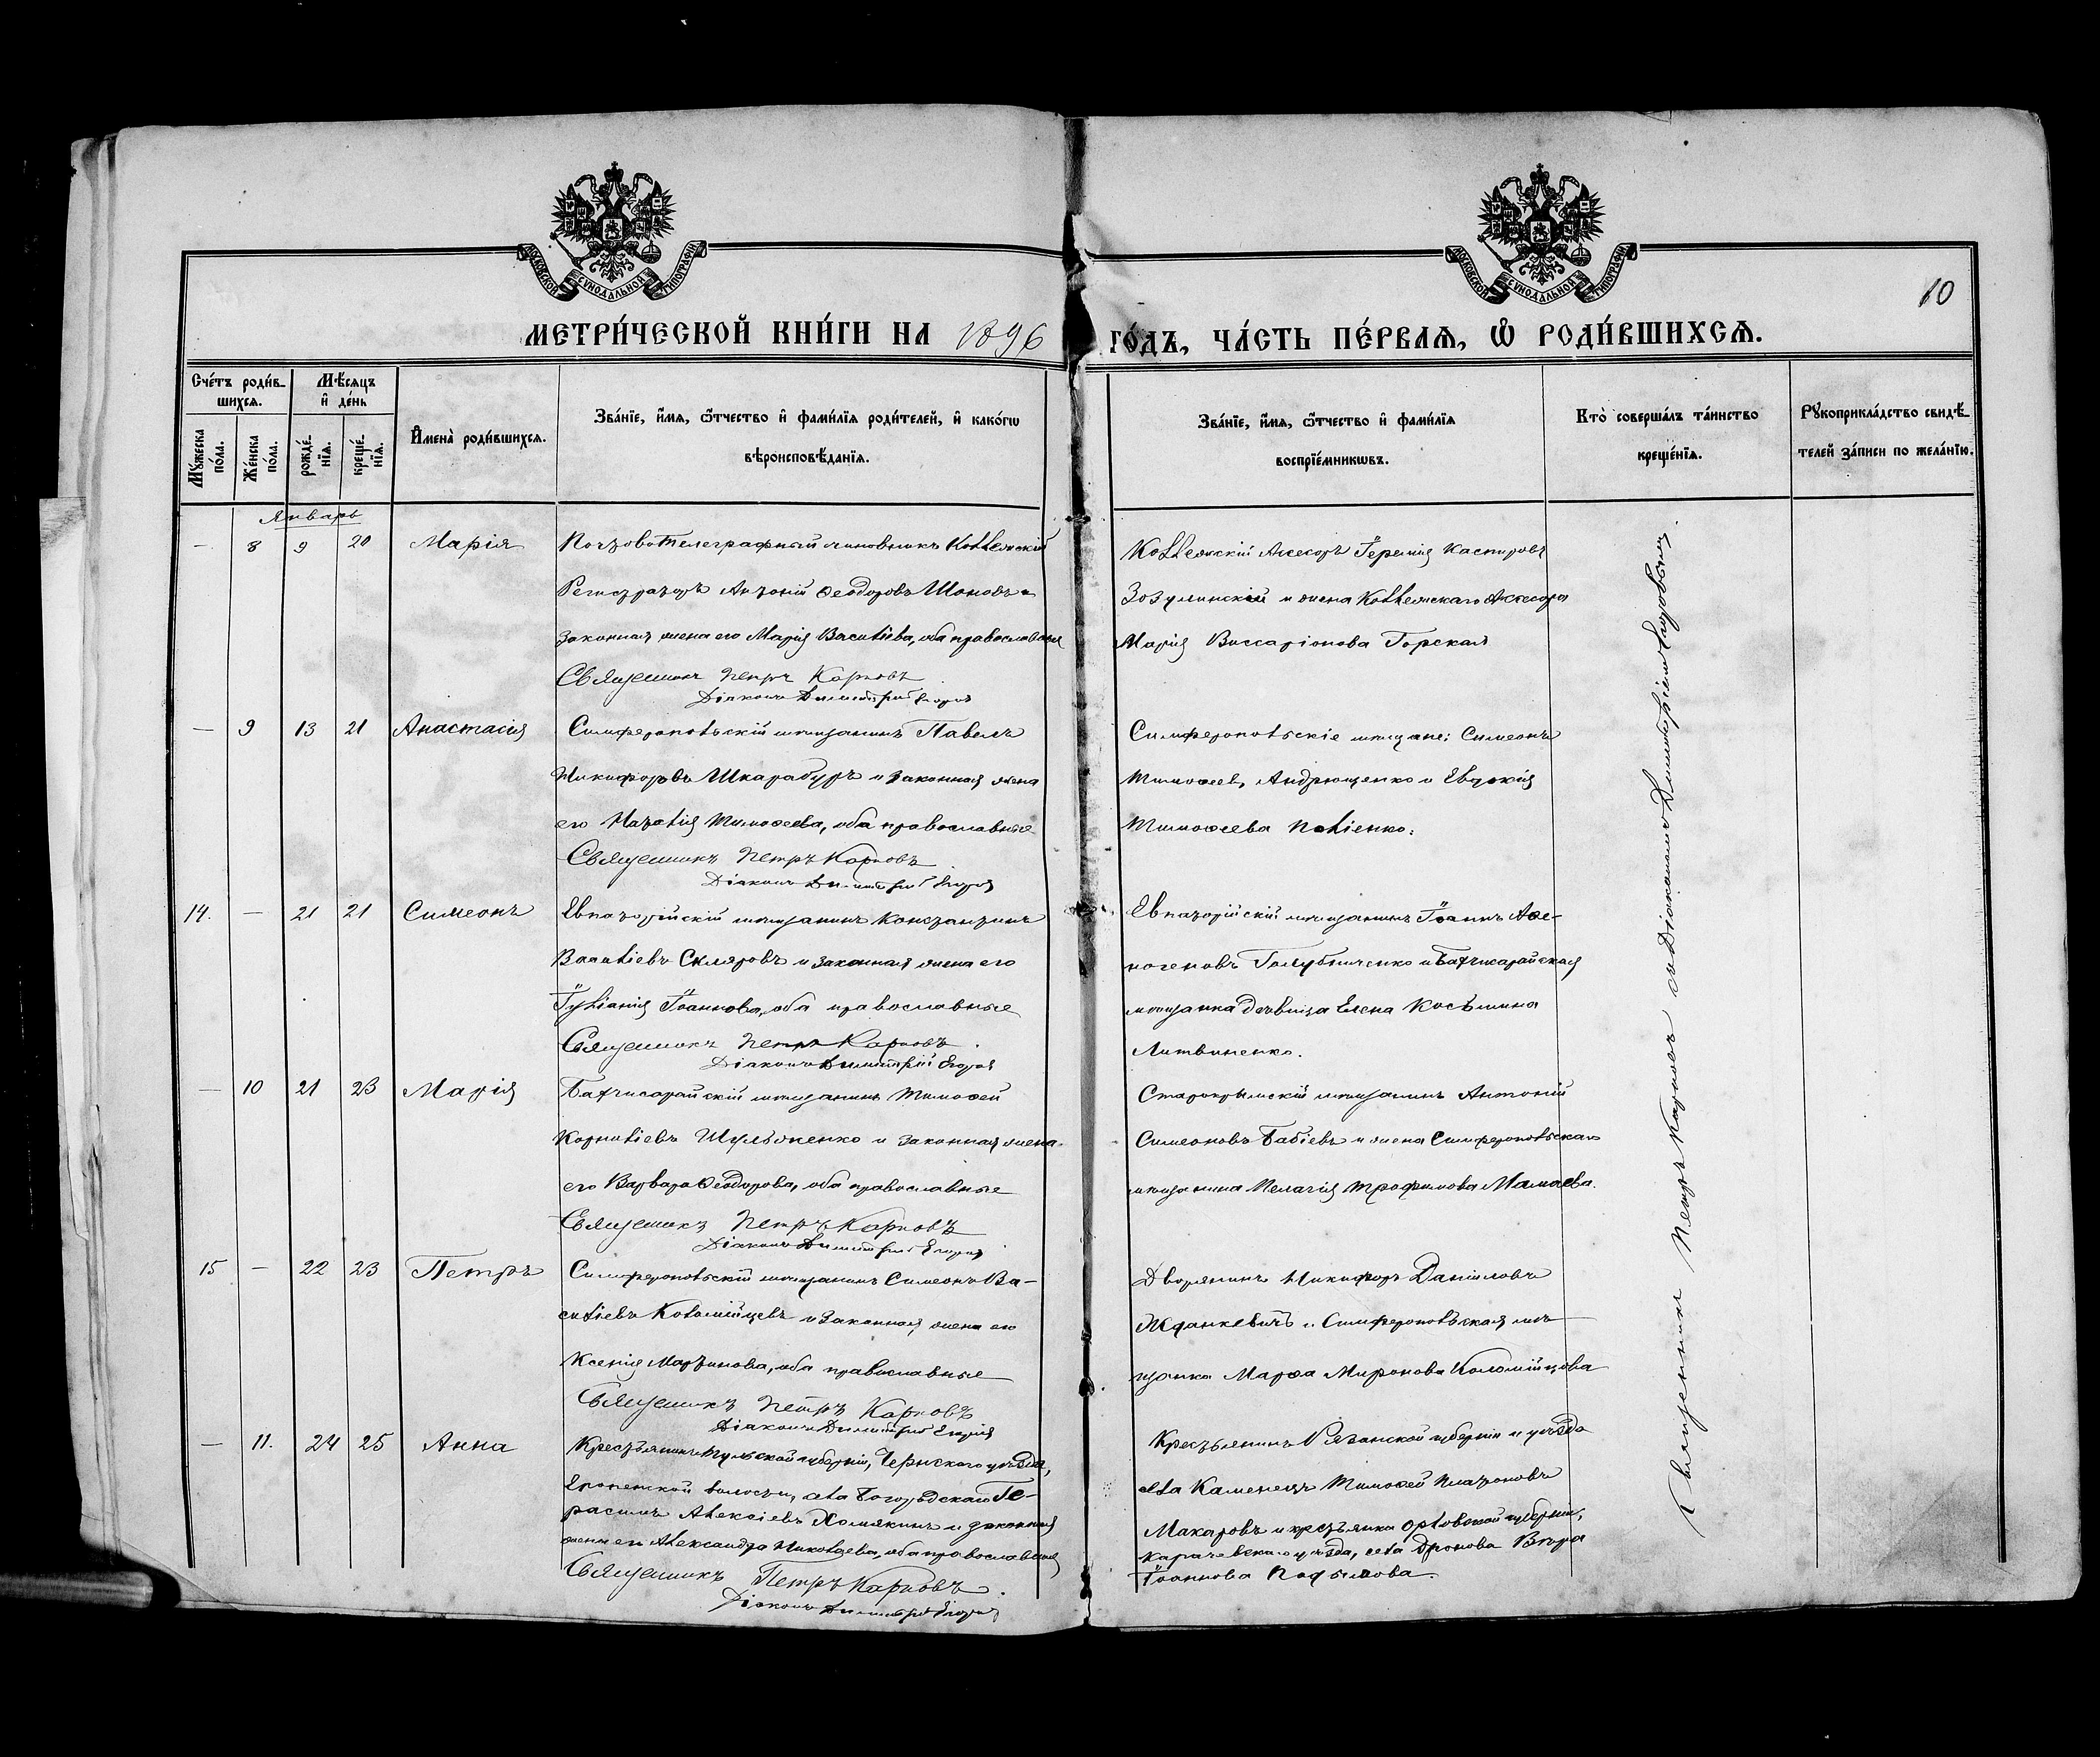 МОСКОВСКОЙ СѴНОДАЛЬНОЙ ТИПОГРАФІИ
МОСКОВСКОЙ СѴНОДАЛЬНОЙ ТИПОГРАФІИ
10
МЕТРИ́ЧЕСКОЙ КНИ́ГИ НА 1896 ГО́ДЪ, ЧА́СТЬ ПЕ́РВАѦ, Ѡ҆ РОДИ́ВШИХСѦ.
Сче́тъ роди́в-
шихсѧ.
Мѣ́сѧцъ
и҆ де́нь
Мꙋ́жеска
по́ла.
Же́нска
по́ла.
рожде́-
нїѧ.
креще́-
нїѧ.
И҆мена̀ роди́вшихсѧ.
Зва́нїе, и҆́мѧ, ѻ҆́тчество и҆ фами́лїѧ роди́телей, и҆ како́гѡ
вѣроисповѣ́данїѧ.
Зва́нїе, и҆́мѧ, ѻ҆́тчество и҆ фами́лїѧ
воспрїе́мникѡвъ.
Кто̀ соверша́лъ та́инство
креще́нїѧ.
Рꙋкоприкла́дство свидѣ́-
телей за́писи по жела́нїю.
Январь
— 8 9 20 Марія
Почтово Телеграфный чиновникъ Коллежскій
Регистраторъ Антоній Ѳеодоровъ Шоновъ и
законная жена его Марія Васильева, оба православные
Священникъ Петръ Карповъ
Діаконъ Димитрій Егоровъ
Коллежскій Асесоръ Іеремія Каспировъ
Зозулинскій и жена Коллежскаго Асессора
Марія Виссаріонова Горская
— 9 13 21 Анастасія
Симферопольскій мѣщанинъ Павелъ
Никифоровъ Шкарабуръ и законная жена
его Наталія Тимоѳеева, оба православные
Священникъ Петръ Карповъ
Діаконъ Димитрій Егоровъ
Симферопольскіе мѣщане: Симеонъ
Тимоѳеевъ Андрющенко и Евдокія
Тимоѳеева Паліенко.
14. — 21 21 Симеонъ
Евпаторійскій мѣщанинъ Константинъ
Васильевъ Скляровъ и законная жена его
Іуліанія Іоаннова, оба православные
Священникъ Петръ Карповъ.
Діаконъ Димитрій Егоровъ
Евпаторійскій мѣщанинъ Іоаннъ Аѳе-
ногеновъ Голубниченко и Бахчисарайская
мѣщанка дѣвица Елена Косьмина
Литвиненко.
— 10 21 23 Марія
Бахчисарайскій мѣщанинъ Тимоѳей
Корниліевъ Шульженко и законная жена
его Варвара Ѳеодорова, оба православные
Священникъ Петръ Карповъ
Діаконъ Димитрій Егоровъ
Старокрымскій мѣщанинъ Антоній
Симеоновъ Бабіевъ и жена Симферопольскаго
мѣщанина Пелагія Трофимова Мамаева.
15 — 22 23 Петръ
Симферопольскій мѣщанинъ Симеонъ Ва-
сильевъ Коломійцевъ и законная жена его
Ксенія Мартинова, оба православные
Священникъ Петръ Карповъ
Діаконъ Димитрій Егоровъ
Дворянинъ Никифоръ Даніиловъ
Жданкевичъ и Симферопольская мѣ-
щанка Марѳа Миронова Коломійцова
— 11. 24 25 Анна
Крестьянинъ Тульской губерніи, Чернскаго уѣзда,
волости, села Богородскаго Ге-
расимъ Алексіевъ Хомякинъ и законная
жена его Александра Николаева, оба православные
Священникъ Петръ Карповъ.
Діаконъ Димитрій Егоровъ
Крестьянинъ Рязанской губерніи и уѣзда
села Каменецъ Тимоѳей Платоновъ
Макаровъ и крестьянка Орловской губерніи,
Карачевскаго уѣзда, села Дронова Вѣра
Іоаннова
Священникъ Петръ Карповъ съ Діакономъ Димитріемъ Егоровымъ.